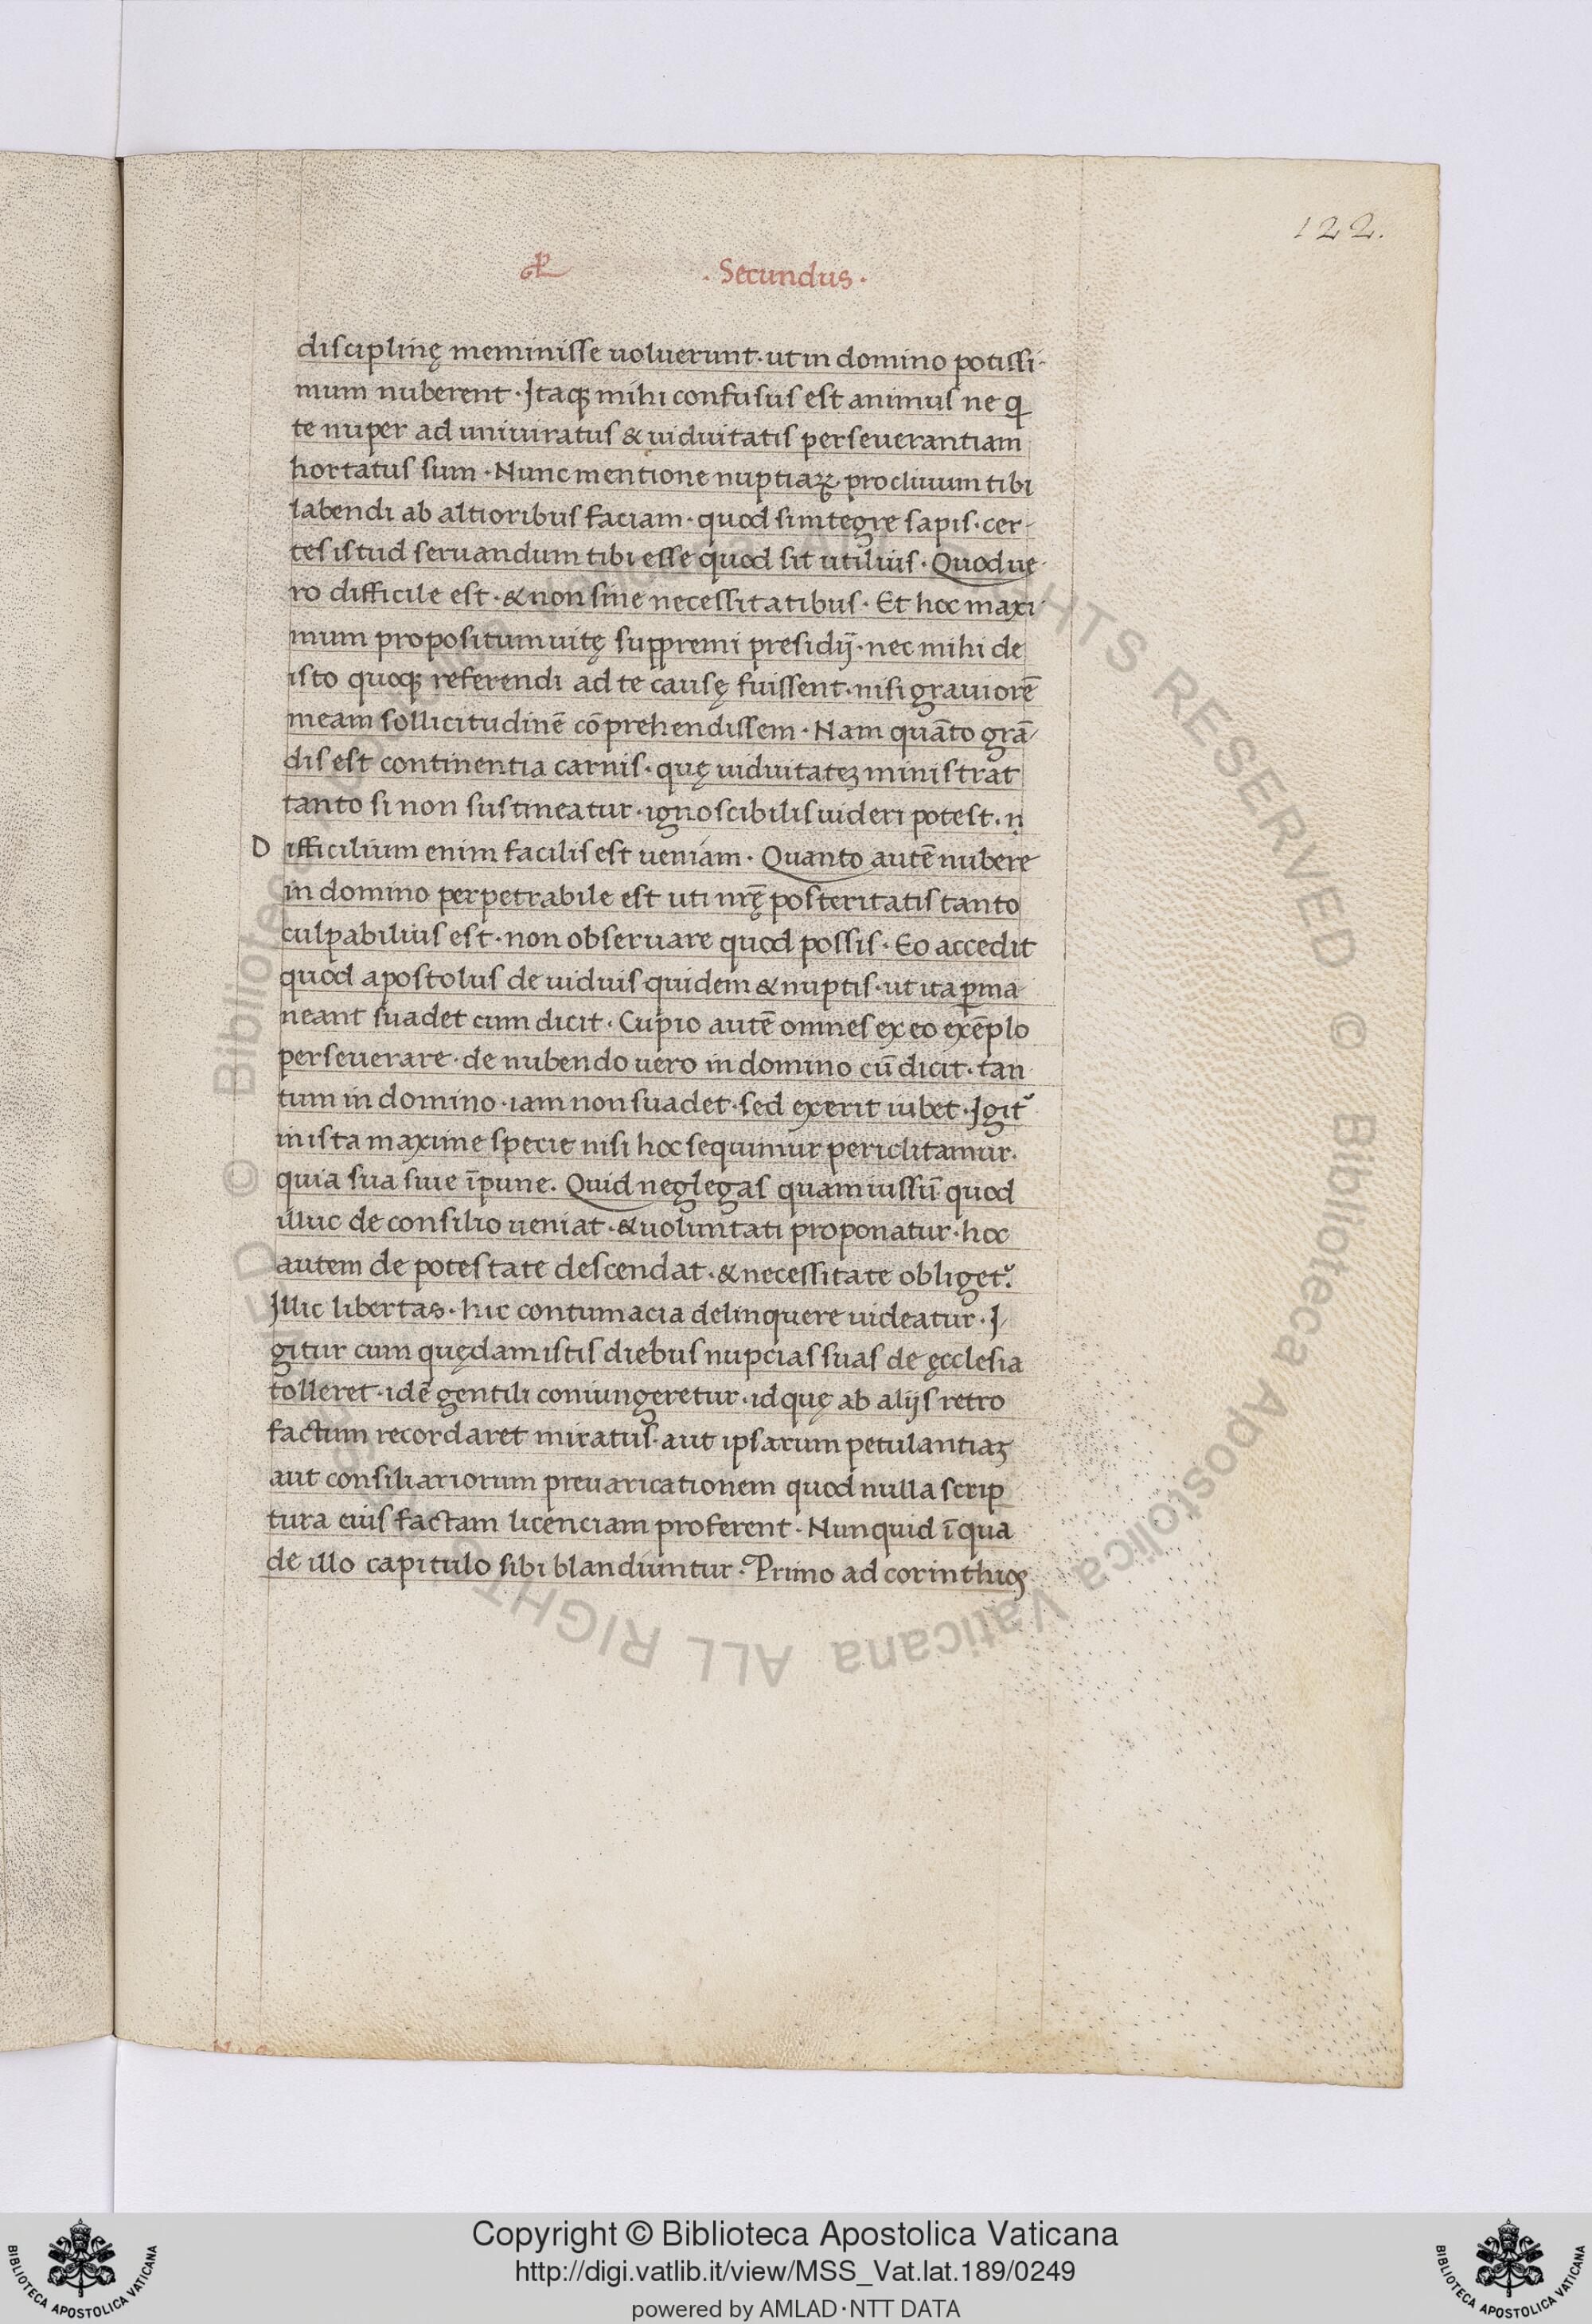 122.
· Secundus ·
disciplinę meminisse uoluerunt · ut in domino potissi-
mum nuberent · Itaqꝫ mihi confusus est animus ne q̄
te nuper ad uniuiratus & uiduitatis perseuerantiam
hortatus sum · Nunc mentione nuptiaꝝ · procliuum tibi
labendi ab altioribus faciam · quod si integre sapis · cer-
tes istud seruandum tibi esse quod sit utilius · Quod ue-
ro difficile est · & non sine necessitatibus · Et hoc maxi-
mum propositum uitę suppremi presidij · nec mihi de
isto quoqꝫ referendi ad te causę fuissent · nisi grauiorē
meam sollicitudinē cōprehendissem · Nam quāto grā-
dis est continentia carnis · quę uiduitateꝫ ministrat
tanto si non sustineatur · ignoscibilis uideri potest · n
D ifficilium enim facilis est ueniam · Quanto autē nubere
in domino perpetrabile est uti nrę̄ posteritatis tanto
culpabilius est · non obseruare quod possis · Eo accedit
quod apostolus de uiduis quidem & nuptis · ut ita ꝑma
neant suadet cum dicit · Cupio autē omnes ex eo exēplo
perseuerare · de nubendo uero in domino cū dicit · tan
tum in domino · iam non suadet · sed exerit iubet · Igit᷑
in ista maxime specie nisi hoc sequimur periclitamur ·
quia sua siue īpune · Quid neglegas quam iussū quod
illuc de consilio ueniat · & uoluntati proponatur · hoc
autem de potestate descendat · & necessitate obliget᷑ ·
Illic libertas · hic contumacia delinquere uideatur · I-
gitur cum quędam istis diebus nupcias suas de ęcclesia
tolleret · idē gentili coniungeretur · id quę ab alijs retro
factum recordaret miratus · aut ipsarum petulantiaꝫ
aut consiliariorum preuaricationem quod nulla scrip
tura eius factam licenciam proferent · Nunquid ī qua
de illo capitulo sibi blandiuntur · Primo ad corinthios
Copyright © Biblioteca Apostolica Vaticana
http://digi.vatlib.it/view/MSS_Vat.lat.189/0249
powered by AMLAD·NTT DATA